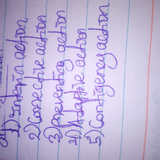 1) Interim action
2) Corrective action
3) preventive action
4) Adaptive action
5) Contigency action